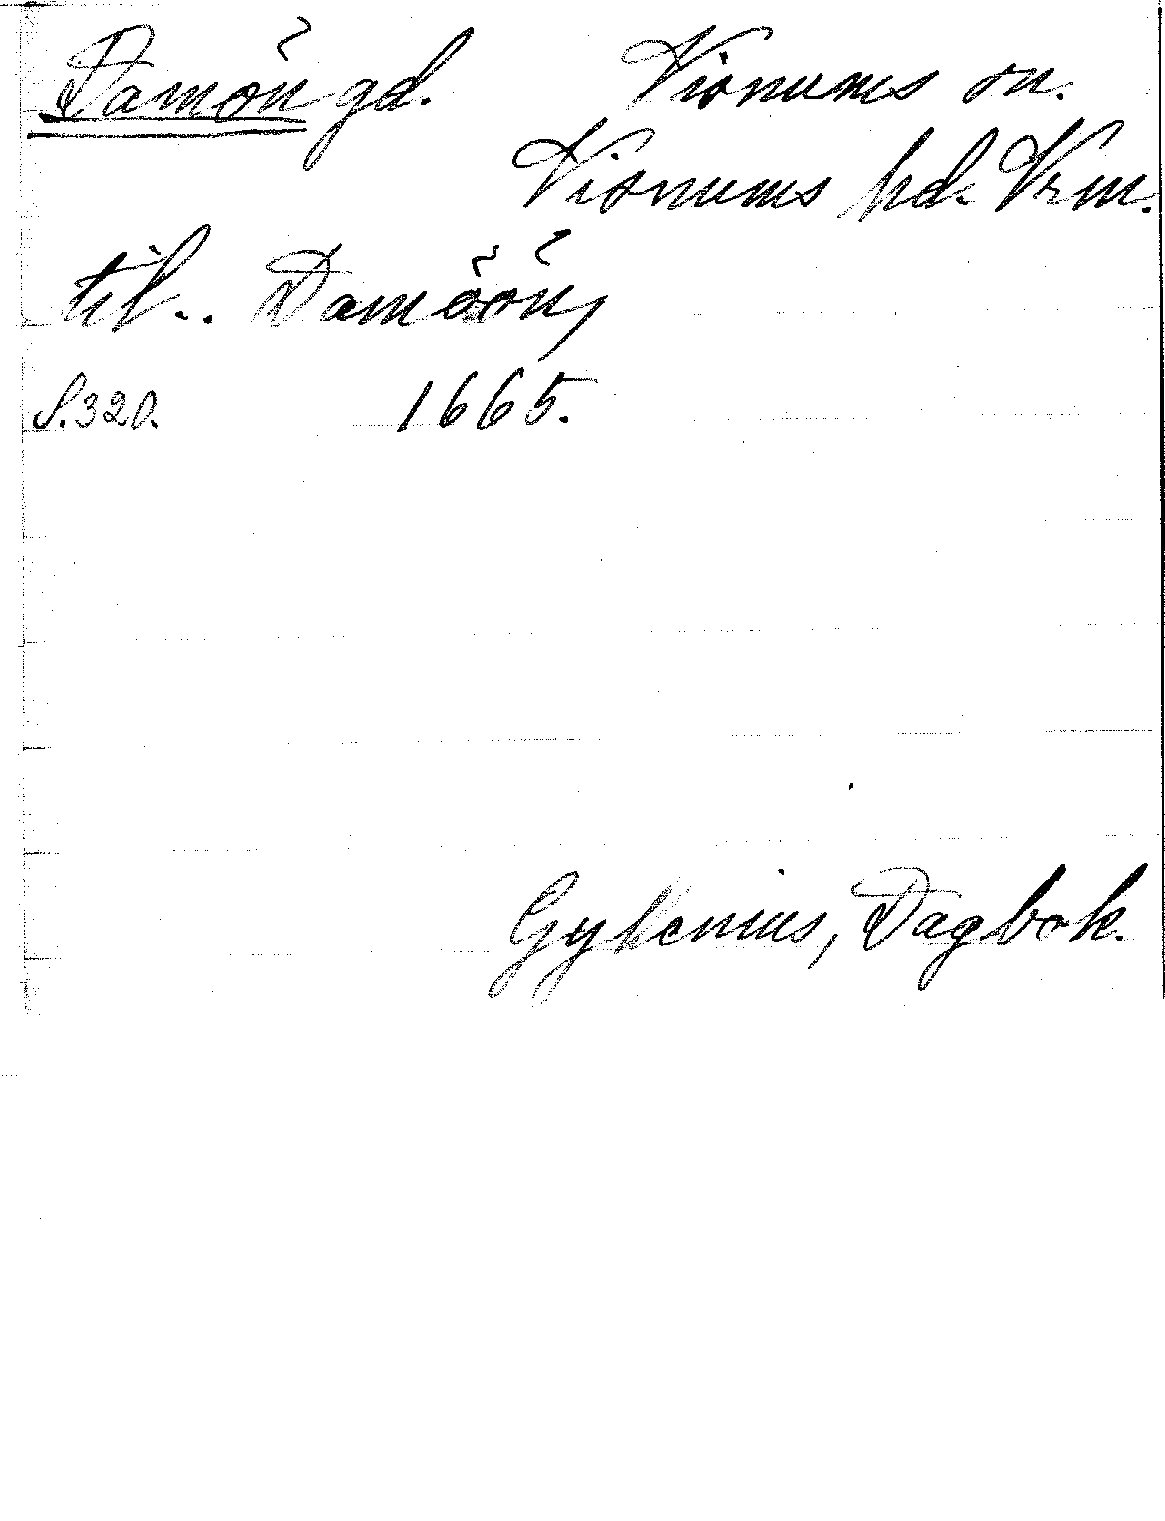 Damön gd. Visnums sn.
Visnums hd. Vrm.
til.. Damöön,
S. 320. 1665.
Gyllenius, Dagbok.